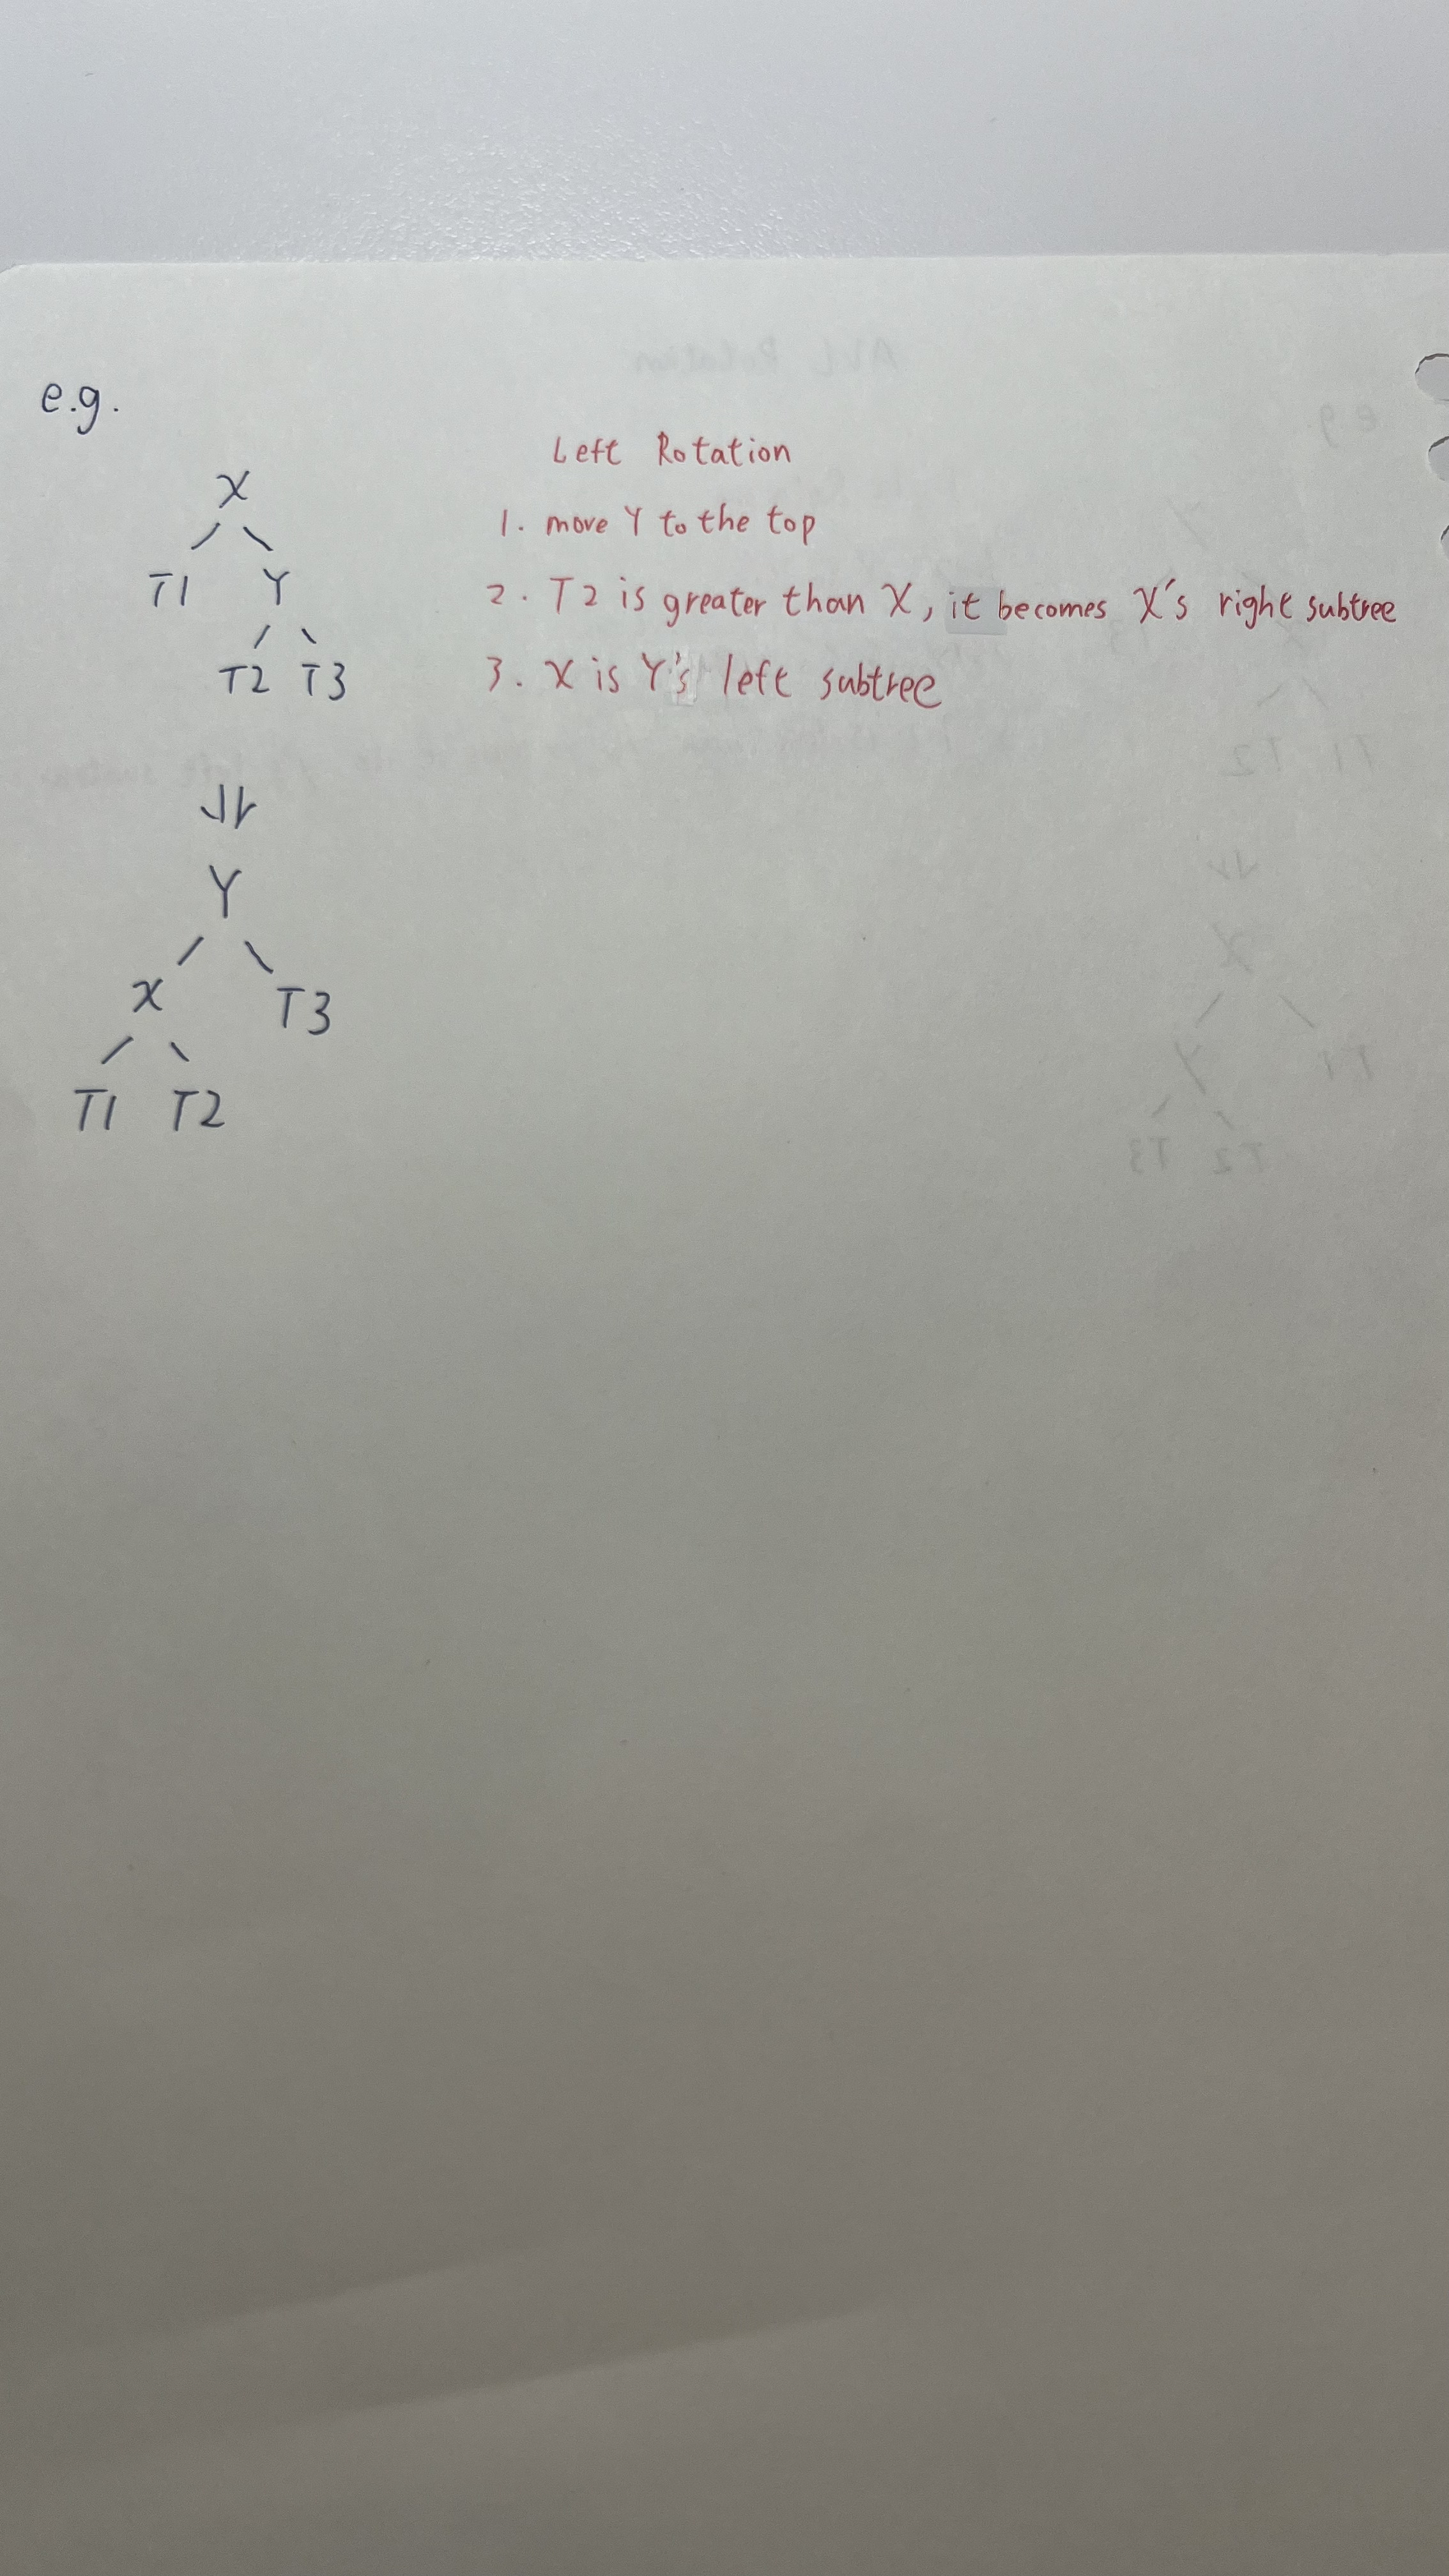 e.g.
X
T1 Y
T2 T3
Y
X T3
T1 T2
Left Rotation
1. move Y to the top
2. T2 is greater than X, it becomes X's right subtree
3. X is Y's left subtree